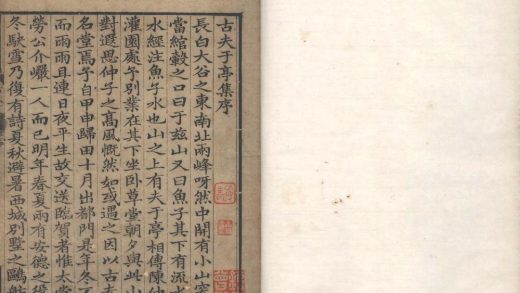 古夫于亭集序
長白大谷之東南址兩峰呀然中開有小山穹
當綰轂之口曰于玆山又曰魚子其下有流水
水經注魚子水也山之上有夫于亭相傳陳仲
灌園處予別業在其下坐卧草堂朝夕與此小
對遐思仲子之高風慨然如或遇之因以古夫
名堂焉予自甲申歸田十月出都門是年冬不
而雨雨且連日夜平生故交送臨賀者惟太常
勞公介巖一人而已明年春夏雨有安德之役
冬駃雪乃復有詩夏秋避暑西城別墅之鷗舫